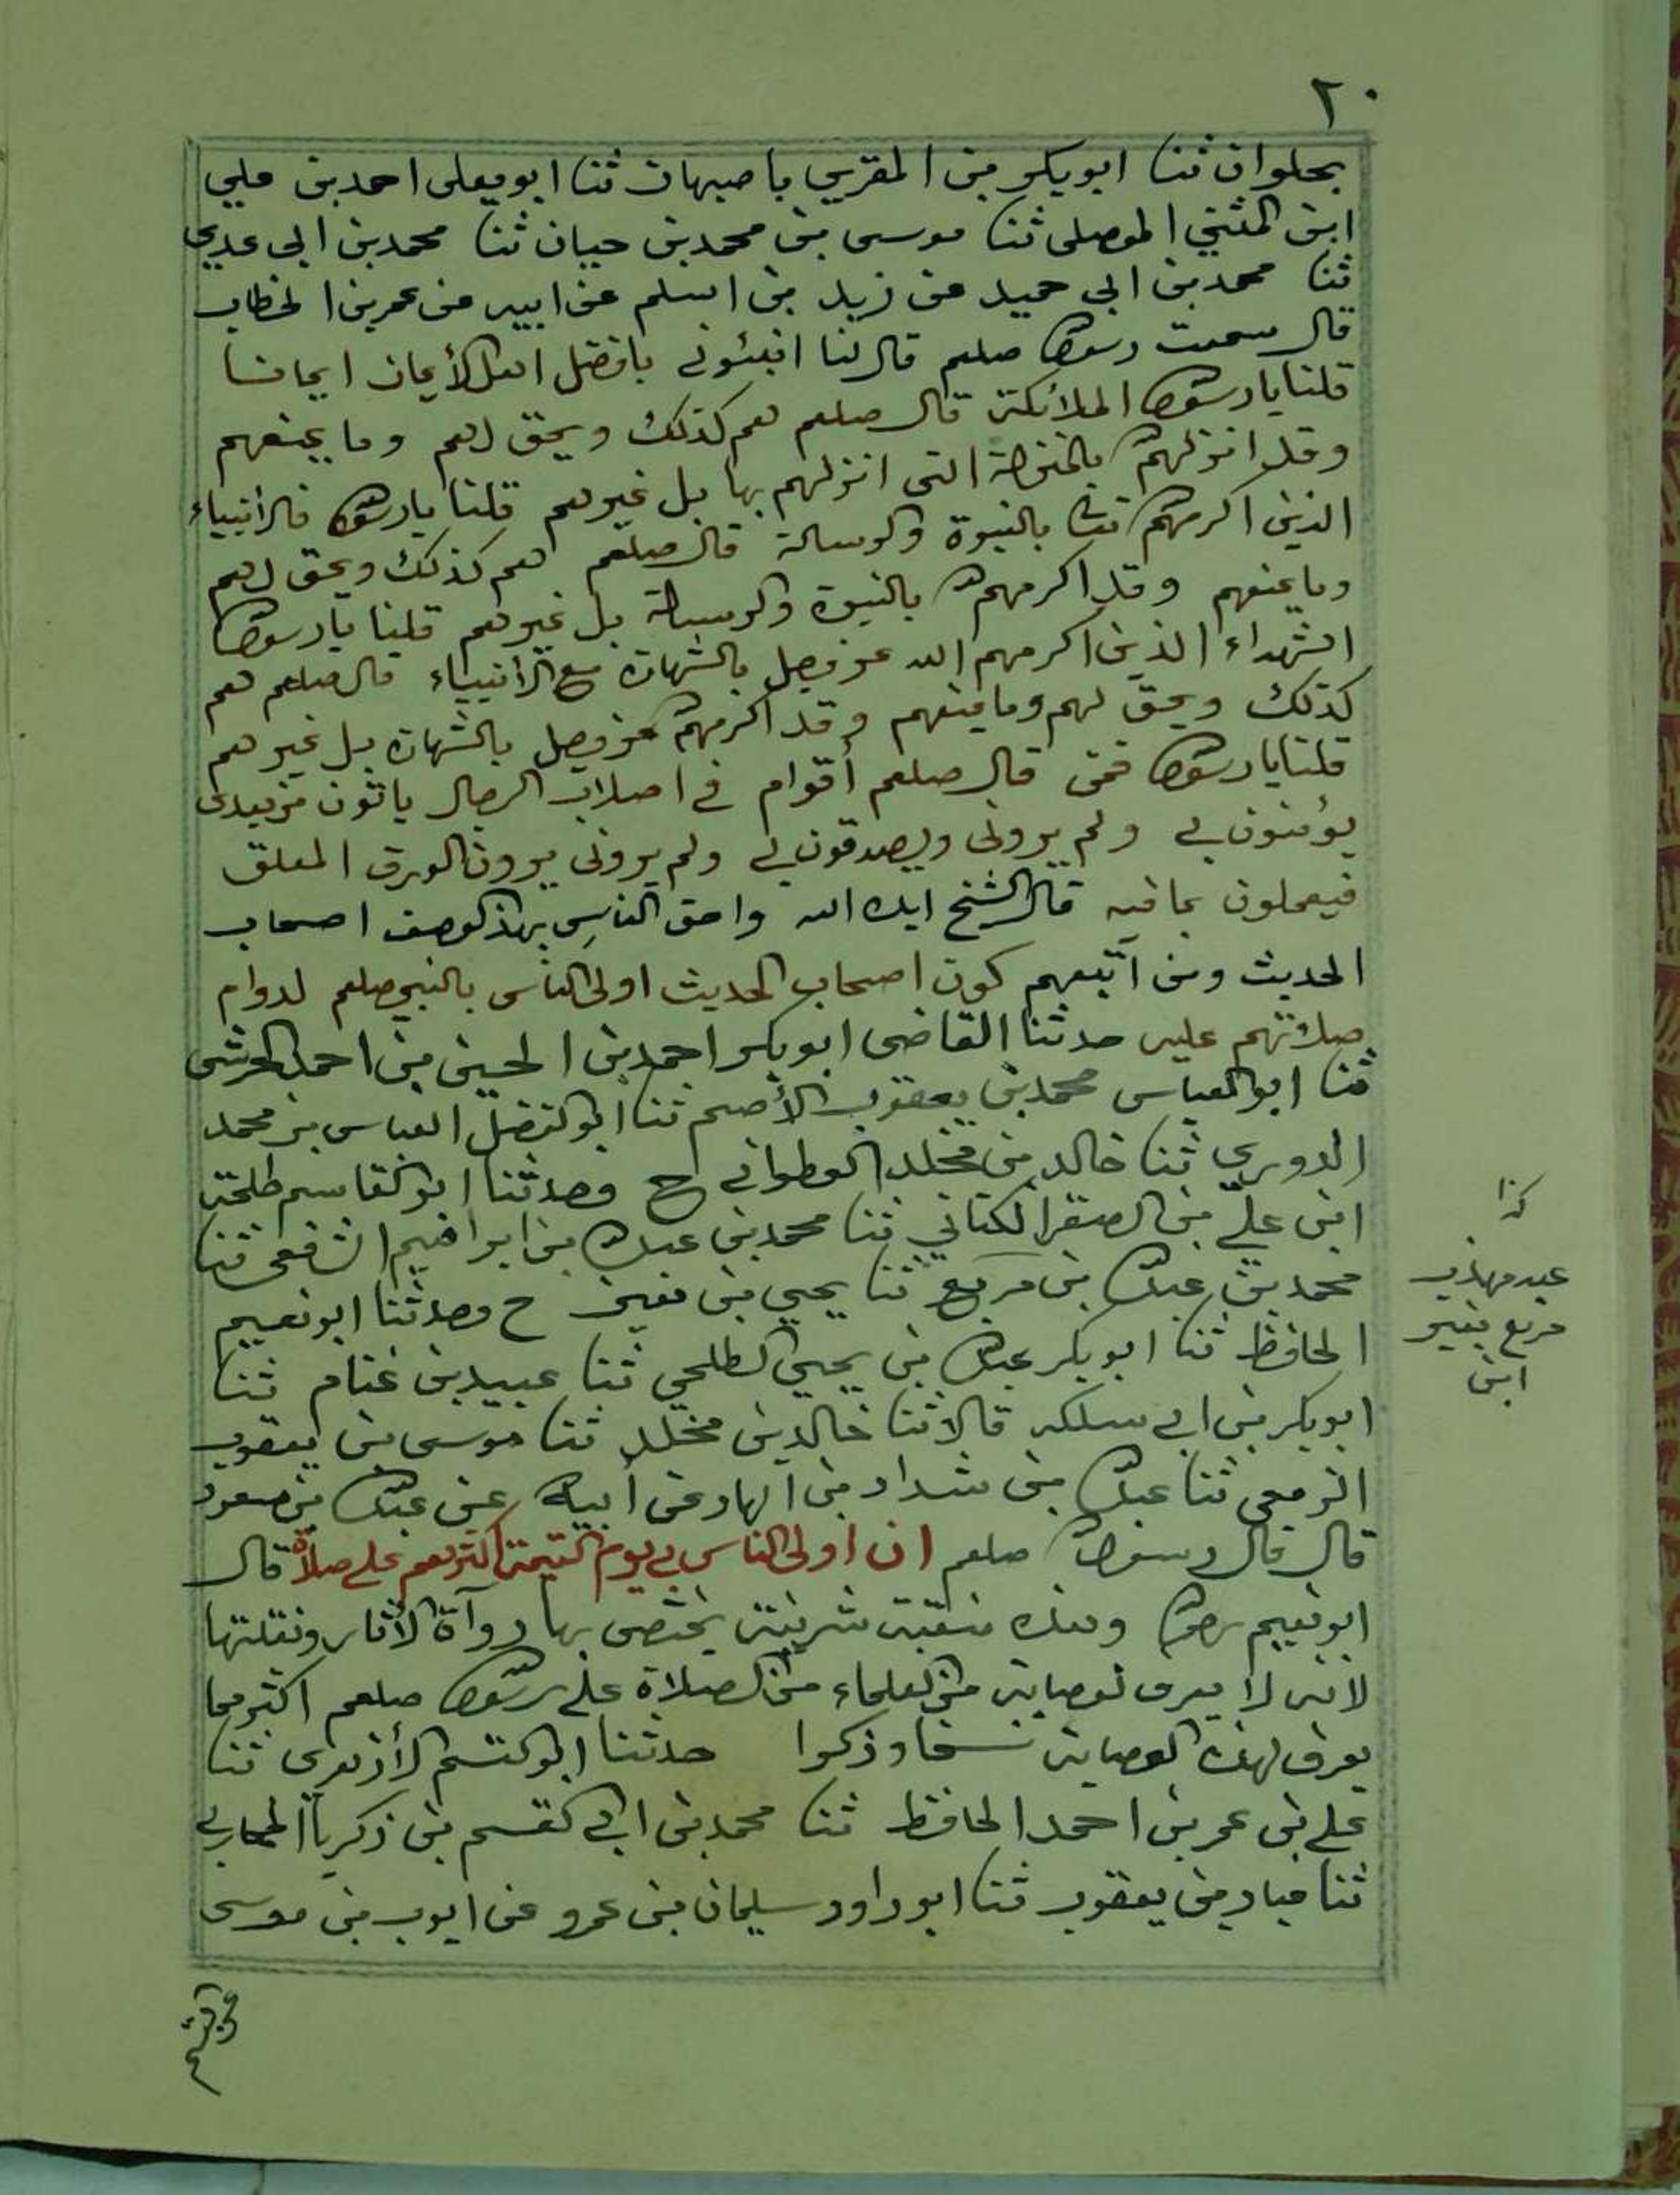 ٢٠
بحلوان ثنا ابوبكر بن المقري باصبهان ثنا ابويعلى احمد بن علي
ابن المثني الموصلى ثنا موسى بن محمد بن حيان ثنا محمد بن ابى عدي
ثنا محمد بن ابى حميد عن زيد بن اسلم عن ابيه عن عمر بن الخطاب
قال سمعت رسول الله صلعم قال لنا انبئونى بافضل اهل الأيمان ايمانا
قلنا يا رسول الله الملائكة قال صلعم هم كذلك ويحق لهم وما يمنعهم
وقد انزلهم الله بالمنزلة التى انزلهم بها بل غيرهم قلنا يا رسول الله فالانبياء
الذين اكرمهم الله تعالى بالنبوة والرسالة قال صلعم هم كذلك ويحق لهم
وما يمنعهم وقد اكرمهم الله بالنبوة والرسالة بل غيرهم قلنا يا رسول الله
الشهداء الذين اكرمهم الله عز وجل بالشهادة مع الانبياء قال صلعم هم
كذلك ويحق لهم وما يمنعهم وقد اكرمهم الله عز وجل بالشهادة بل غيرهم
قلنا يا رسول الله فمن قال صلعم أقوام في اصلاب الرجال ياتون من بعدى
يؤمنون بي ولم يرونى ويصدقون بي ولم يرونى يرون الورق المعلق
فيعملون بما فيه قال الشيخ ايده الله واحق الناس بهذا الوصف اصحاب
الحديث ومن اتبعهم كون اصحاب الحديث اولى الناس بالنبي صلعم لدوام
صلاتهم عليه حدثنا القاضى ابوبكر احمد بن الحسين بن احمد الحرشى
ثنا ابو العباس محمد بن يعقوب الأصم ثنا ابو الفضل العباس بن محمد
الدوري ثنا خالد بن مخلد القطوانى ح وحدثنا ابو القاسم طلحة
ابن علي بن الصقر الكتاني ثنا محمد بن عبد الله بن ابراهيم الشفعى ثنا
محمد بن عبد الله بن مربع ثنا يحيي بن معين ح وحدثنا ابو نعيم
الحافظ ثنا ابوبكر عبد الله بن يحيي الطلحي ثنا عبيد بن غنام ثنا
ابوبكر بن ابى قالا ثنا خالد بن مخلد ثنا موسى بن يعقوب
الزمعى ثنا عبد الله بن شداد بن الهاد عن أبيه عن عبد الله بن مسعود
قال قال رسول الله صلعم ان اولى الناس بي يوم القيمة اكثرهم علي صلاة قال
ابو نعيم رحمه الله وهذه منقبة شريفة يختص بها رواة الأثار ونقلتها
لانه لا يعرف لعصابة من العلماء من الصلاة على رسول الله صلعم اكثر مما
يعرف لهذه العصابة نسخا وذكرا حدثنا ابو القسم الأزهرى ثنا
علي بن عمر بن احمد الحافظ ثنا محمد بن القسم بن زكريا المحاربي
ثنا عباد بن يعقوب ثنا ابو داود سليمان بن عمرو عن ايوب بن موسى
كذا
مربع بغير
ابن